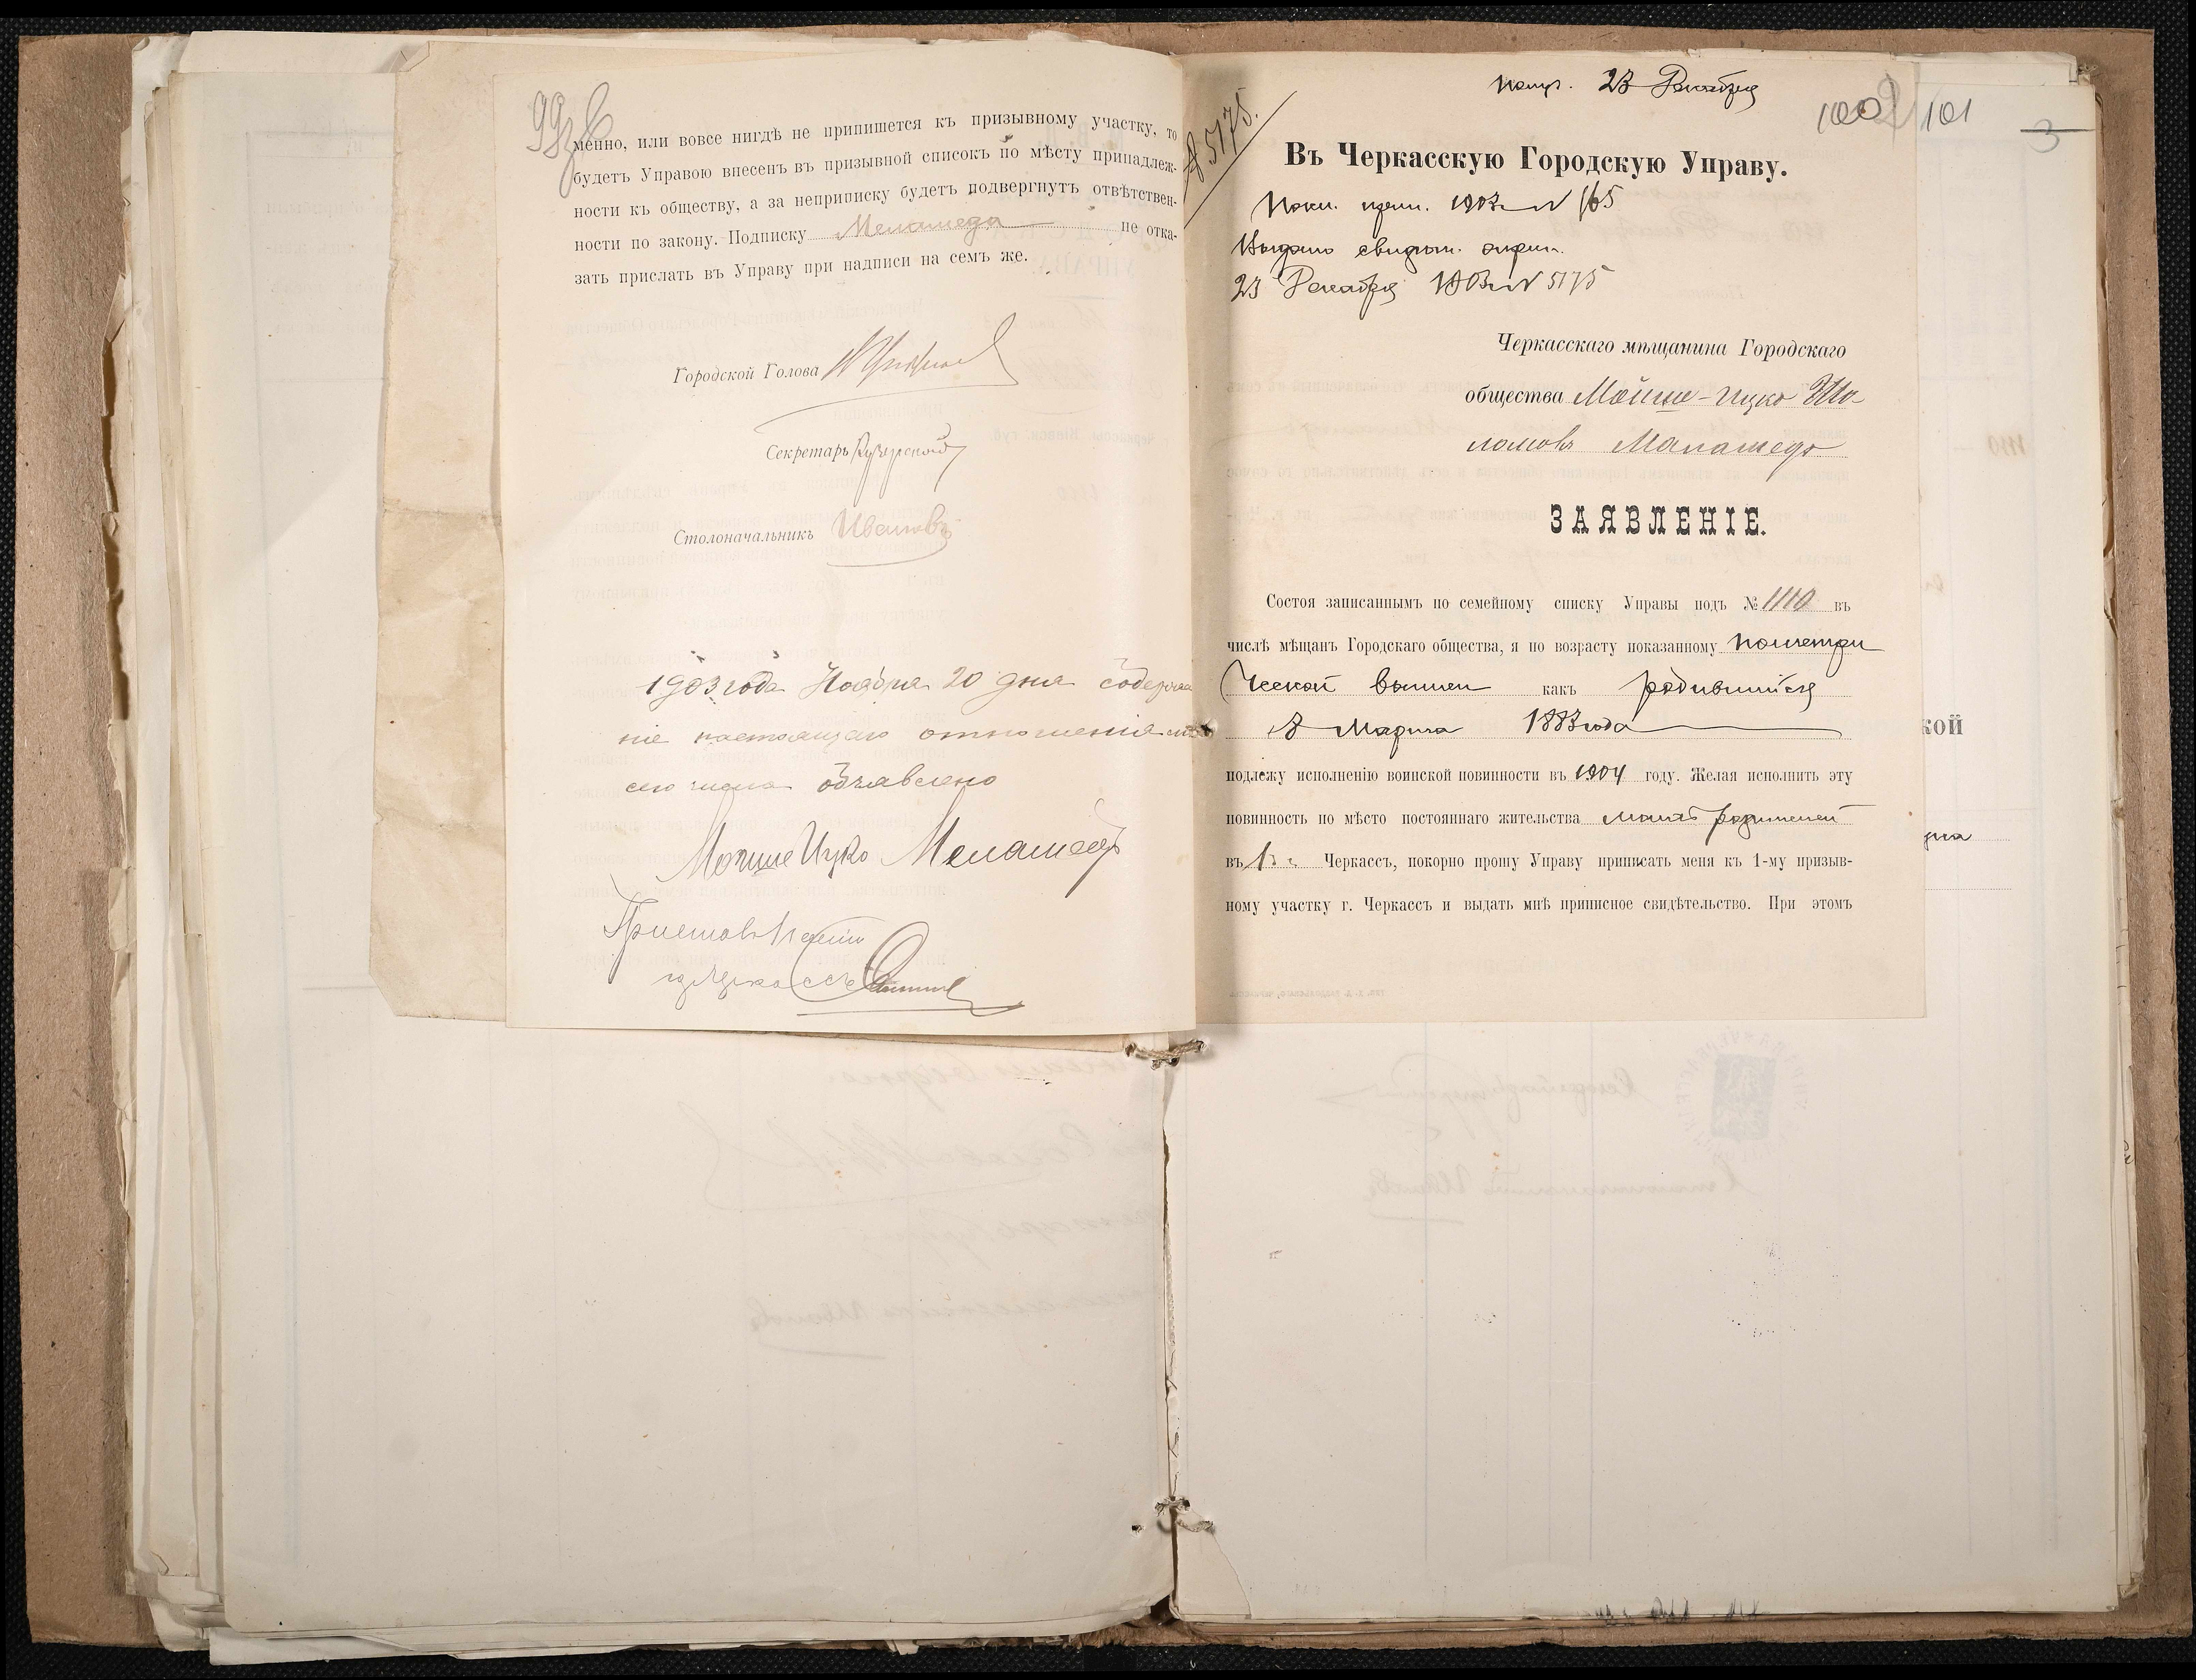 менно, или вовсе нигдѣ не припишется къ призывному участку, то
будетъ Управою внесенъ въ призывной списокъ по мѣсту принадлеж-
ности къ обществу, а за неприписку будетъ подвергнутъ отвѣтствен-
ности по закону. Подписку Меламеда не отка-
зать прислать въ Управу при надписи на семъ же.
Городской Голова
Секретарь
Столоначальникъ Ивановъ
1903 года Ноября 20 дня содержа
ніе настоящаго отношенія мнѣ
сего числа объявлено
Мойше Ицко Меламедъ
Приставъ 1 части
г. Черкассъ
№ 5175.
23 Декабря
100
101
3
Въ Черкасскую Городскую Управу.
1903 г. № 165
Выдано свидѣт. о прип.
23 Декабря 1903 г. № 5175
Черкасскаго мѣщанина Городскаго
общества Мойше-Ицко Ша-
ломовъ Маламедъ
ЗАЯВЛЕНІЕ.
Состоя записаннымъ по семейному списку Управы подъ № 1110 въ
числѣ мѣщанъ Городскаго общества, я по возрасту показанному по метри
ческой выписи какъ родившійся
8 Марта 1883 года
подлежу исполненію воинской повинности въ 1904 году. Желая исполнить эту
повинность по мѣсто постояннаго жительства моихъ родителей
въ г. Черкассъ, покорно прошу Управу приписать меня къ 1-му призыв-
ному участку г. Черкассъ и выдать мнѣ приписное свидѣтельство. При этомъ
кой